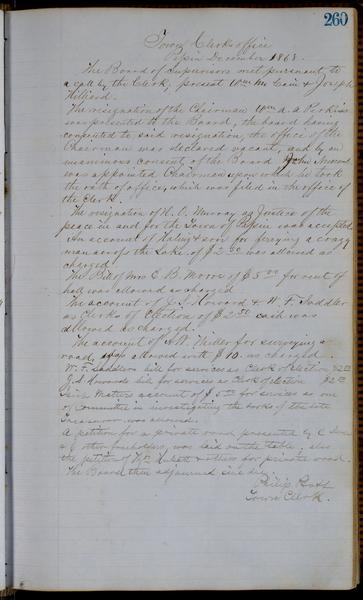 260
Town Clerks office
Pepin December 1868.
The Board of Supervisors met pursuant to
a call by the Clerk, present Wm McCain & Joseph
Hilliard.
The resignation of the Chairman Wm A. Perkins
was presented to the Board, the board having
consented to said resignation, the office of the
Chairman was declared vacant, and by an
unanimous consent of the Board John
was appointed Chairman upon which he took
the oath of office, which was filed in the office of
the Clerk.
The resignation of H. O. Murray as Justice of the
peace in and for the Town of Pepin was accepted.
An account of & son for ferrying a crazy
man across the Lake of $2.00 was allowed as
charged.
The Bill of Mrs E. B. Moore of $5.00 for rent of
hall was allowed as charged
The account of J. Howard & W. F. Saddler
as Clerks of Election of $2.50 said was
allowed as charged.
The account of Miller for surveying a
road, was allowed with $10. as charged
W. F. Saddlers bill for services as Clerk of Election $2.50
Howards bill for services as Clerk of election $2.50
account of $5.00 for services as one
of Committee in investigating the books of the late
Treasurer was allowed.
A petition for a private road presented by C
& other freeholders was laid on the table, also
the petition of & others for private road.
The Board then adjourned sine die.
Philip
Town Clerk.